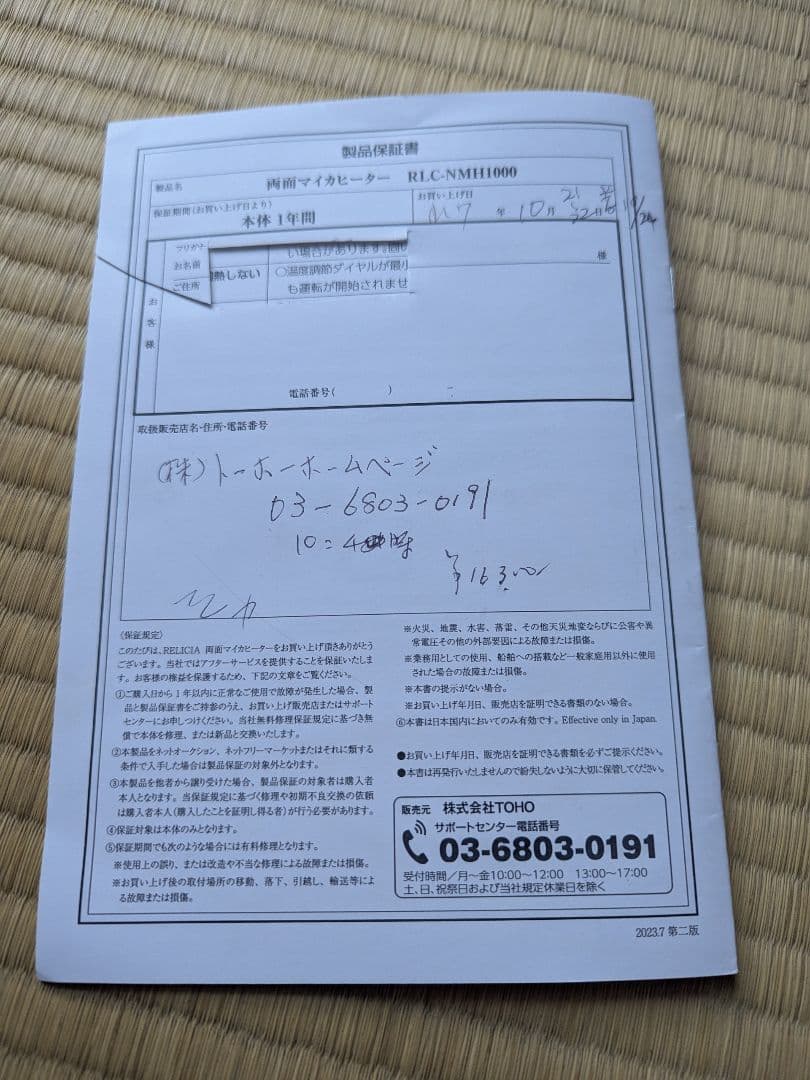 製品保証書
製品名 両面マイカヒーター RLC-NMH1000
保証期間(お買い上げ日より) 本体1年間
お買い上げ日
年 10月 21
フリガナ
お名前 様
ご住所
お客様
熱しない
い場合があります。固い
○温度調節ダイヤルが最小
も運転が開始されませ
電話番号( ) -
取扱販売店名・住所・電話番号
(株)トーホーホームページ
03-6803-0191
¥16300
〈保証規定〉
このたびは、RELICIA 両面マイカヒーターをお買い上げ頂きありがとう
ございます。当社ではアフターサービスを提供することを保証いたしま
す。お客様の権益を保護するため、下記の文章をご覧ください。
①ご購入日から1年以内に正常なご使用で故障が発生した場合、製
品と製品保証書をご持参のうえ、お買い上げ販売店またはサポート
センターにお申しつけください。当社無料修理保証規定に基づき無
償で本体を修理、または新品と交換いたします。
②本製品をネットオークション、ネットフリーマーケットまたはそれに類する
条件で入手した場合は製品保証の対象外となります。
③本製品を他者から譲り受けた場合、製品保証の対象者は購入者
本人となります。当保証規定に基づく修理や初期不良交換の依頼
は購入者本人(購入したことを証明し得る者)が行う必要があります。
④保証対象は本体のみとなります。
⑤保証期間でも次のような場合には有料修理となります。
※使用上の誤り、または改造や不当な修理による故障または損傷。
※お買い上げ後の取付場所の移動、落下、引越し、輸送等によ
る故障または損傷。
※火災、地震、水害、落雷、その他天災地変ならびに公害や異
常電圧その他の外部要因による故障または損傷。
※業務用としての使用、船舶への搭載など一般家庭用以外に使用
された場合の故障または損傷。
※本書の提示がない場合。
※お買い上げ年月日、販売店を証明できる書類のない場合。
⑥本書は日本国内においてのみ有効です。Effective only in Japan.
●お買い上げ年月日、販売店を証明できる書類を必ずご提示ください。
●本書は再発行いたしませんので紛失しないように大切に保管してください。
販売元 株式会社TOHO
サポートセンター電話番号
03-6803-0191
受付時間／月～金10:00～12:00 13:00～17:00
土、日、祝祭日および当社規定休業日を除く
2023.7 第二版